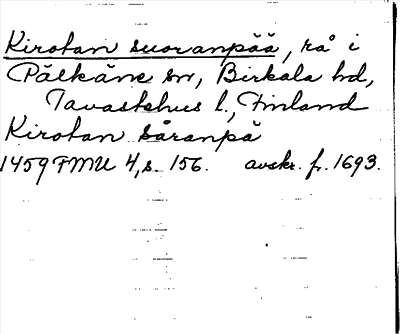 Kirotan suoranpää, rå i
Pälkäne sn, Birkala hd,
Tavastehus l., Finland
Kirotan såranpä
1459 FMU 4, s. 156. avskr. fr. 1693.